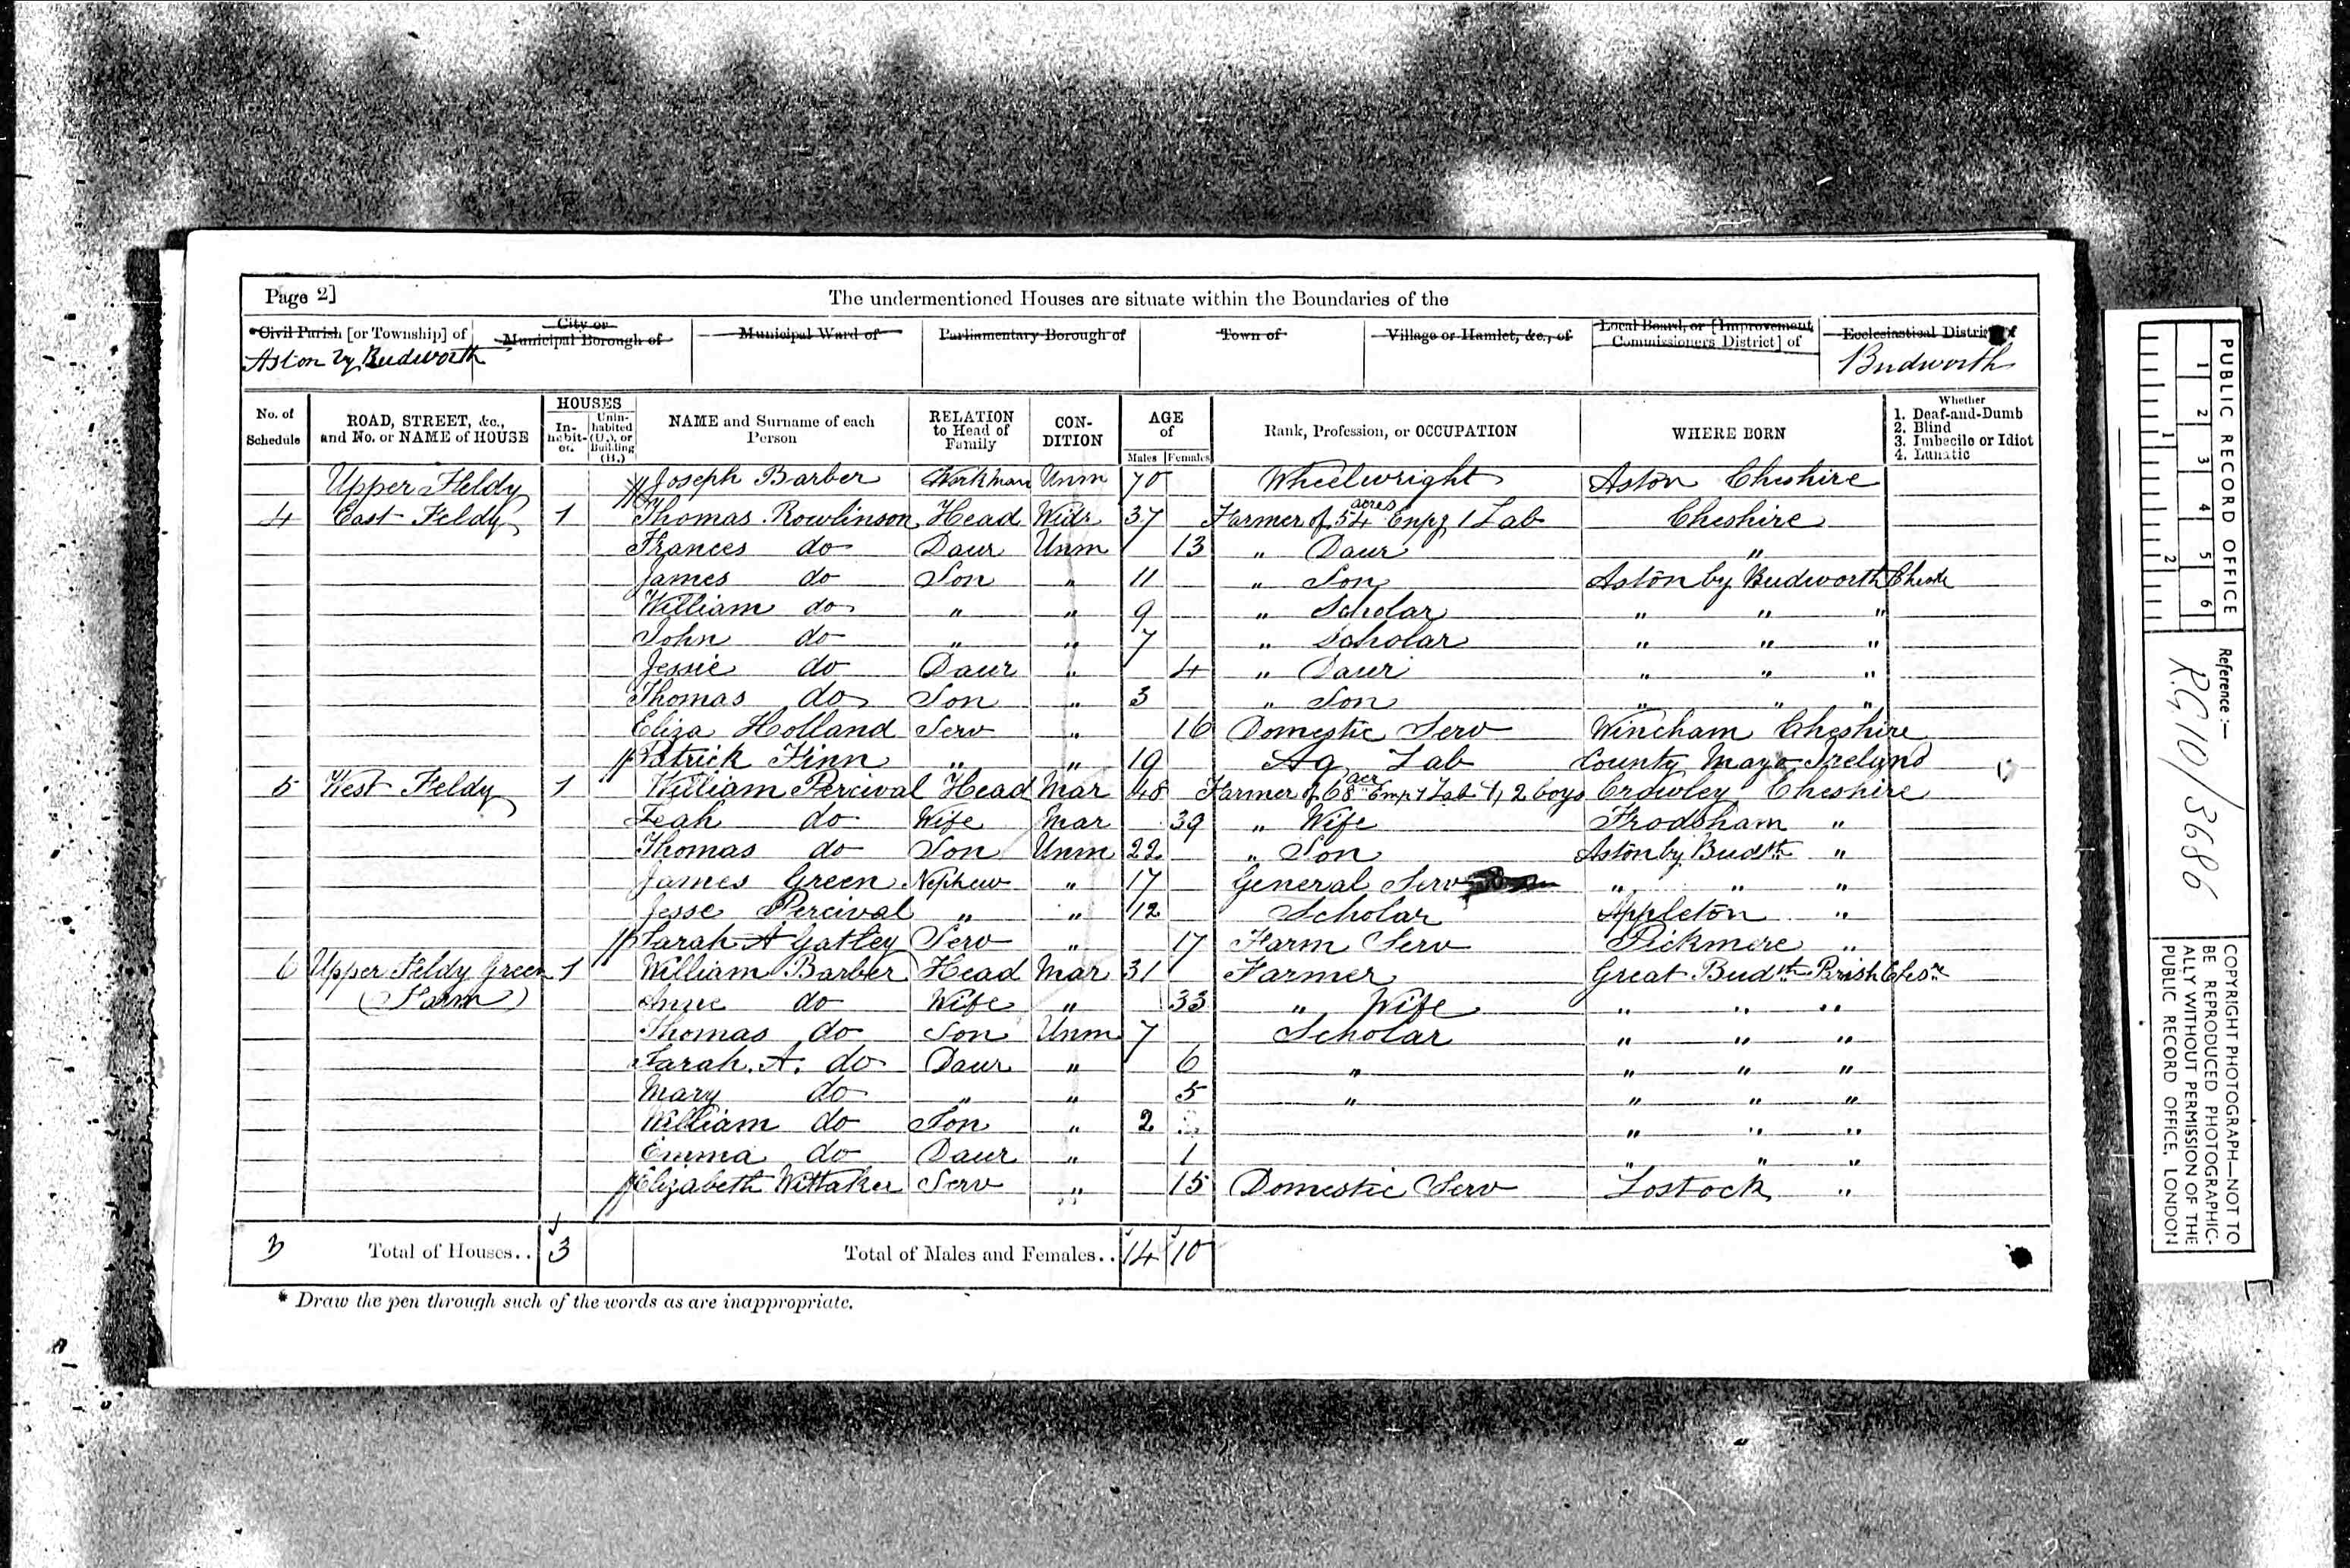 Page 2]
The undermentioned Houses are situate within the Boundaries of the
*Civil Parish [or Township] of
Aston by Budworth
City or
Municipal Borough of
Municipal Ward of
Parliamentary Borough of
Town of
Village or Hamlet, &c., of
Local Board, or [Improvement
Commissioners District] of
Ecclesiastical District of
Budworth
No. of
Schedule
ROAD, STREET, &c.,
and No. or NAME of HOUSE
HOUSES
In-
habit-
ed.
Unin-
habited
(U.), or
Building
(B.)
NAME and Surname of each
Person
RELATION
to Head of
Family
CON-
DITION
AGE
of
Males Females
Rank, Profession, or OCCUPATION
WHERE BORN
Whether
1. Deaf-and-Dumb
2. Blind
3. Imbecile or Idiot
4. Lunatic
Upper Feldy Joseph Barber Workman Unm 70 Wheelwright Aston Cheshire
4 East Feldy 1 Thomas Rowlinson Head Widr 37 Farmer of 54 acres Empg 1 Lab Cheshire
Frances do Daur Unm 13 " Daur "
James do Son " 11 " Son Aston by Budworth Chesh
William do " " 9 " Scholar " " "
John do " " 7 " Scholar " " "
Jessie do Daur " 4 " Daur " " "
Thomas do Son " 3 " Son " " "
Eliza Holland Serv " 16 Domestic Serv Wincham Cheshire
Patrick Finn " " 19 Ag Lab County Mayo Ireland
5 West Feldy 1 William Percival Head Mar 48 Farmer of 68 acr Emp 1 Lab & 2 boys Crowley Cheshire
Leah do Wife Mar 39 " Wife Frodsham "
Thomas do Son Unm 22 " Son Aston by Budth "
James Green Nephew " 17 General Serv " " "
Jesse Percival " " 12 Scholar Appleton "
Sarah A Gatley Serv " 17 Farm Serv Pickmere "
6 Upper Feldy Green 1 William Barber Head Mar 31 Farmer Great Budth Parish Chesr
(Farm) Anne do Wife " 33 " Wife " " "
Thomas do Son Unm 7 Scholar " " "
Sarah. A. do Daur " 6 " " " "
Mary do " " 5 " " " "
William do Son " 2 " " "
Emma do Daur " 1 " " "
Elizabeth Wittaker Serv " 15 Domestic Serv Lostock "
3 Total of Houses.. 3 Total of Males and Females.. 14 10
* Draw the pen through such of the words as are inappropriate.
PUBLIC RECORD OFFICE
1 2 3 4 5 6
1 2
Reference:—
R.G 10/3686
COPYRIGHT PHOTOGRAPH—NOT TO
BE REPRODUCED PHOTOGRAPHIC-
ALLY WITHOUT PERMISSION OF THE
PUBLIC RECORD OFFICE, LONDON